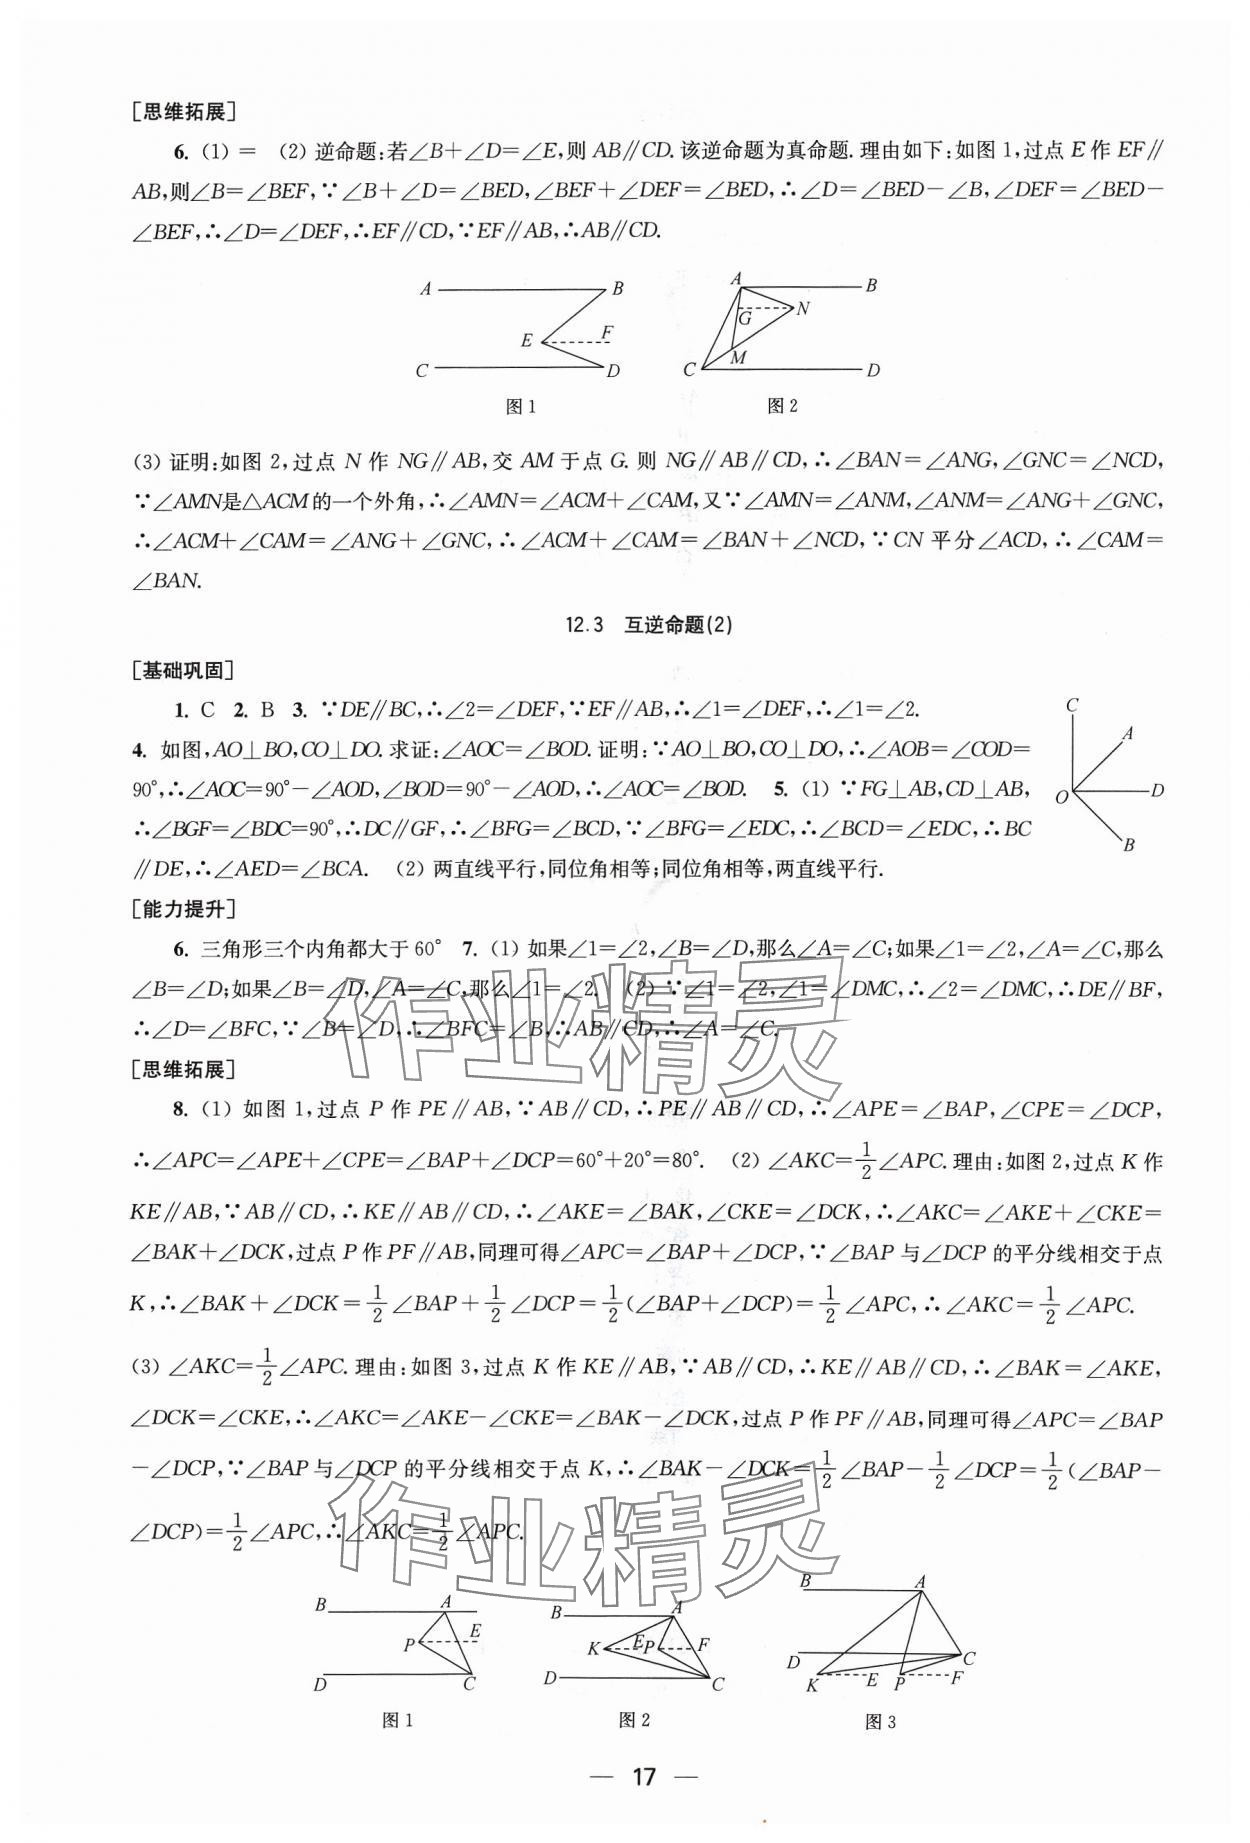 [思维拓展]
6. (1) = (2) 逆命题:若∠B+∠D=∠E,则 AB∥CD. 该逆命题为真命题. 理由如下:如图 1,过点 E 作 EF∥
AB,则∠B=∠BEF,∵∠B+∠D=∠BED,∠BEF+∠DEF=∠BED,∴∠D=∠BED-∠B,∠DEF=∠BED-
∠BEF,∴∠D=∠DEF,∴EF∥CD,∵EF∥AB,∴AB∥CD.
A B E F C D
图 1
A B N G M C D
图 2
(3) 证明:如图 2,过点 N 作 NG∥AB,交 AM 于点 G. 则 NG∥AB∥CD,∴∠BAN=∠ANG,∠GNC=∠NCD,
∵∠AMN是△ACM的一个外角,∴∠AMN=∠ACM+∠CAM,又∵∠AMN=∠ANM,∠ANM=∠ANG+∠GNC,
∴∠ACM+∠CAM=∠ANG+∠GNC,∴∠ACM+∠CAM=∠BAN+∠NCD,∵CN 平分∠ACD,∴∠CAM=
∠BAN.
12.3 互逆命题(2)
[基础巩固]
1. C 2. B 3. ∵DE∥BC,∴∠2=∠DEF,∵EF∥AB,∴∠1=∠DEF,∴∠1=∠2.
4. 如图,AO⊥BO,CO⊥DO. 求证:∠AOC=∠BOD. 证明:∵AO⊥BO,CO⊥DO,∴∠AOB=∠COD=
90°,∴∠AOC=90°-∠AOD,∠BOD=90°-∠AOD,∴∠AOC=∠BOD. 5. (1) ∵FG⊥AB,CD⊥AB,
∴∠BGF=∠BDC=90°,∴DC∥GF,∴∠BFG=∠BCD,∵∠BFG=∠EDC,∴∠BCD=∠EDC,∴BC
∥DE,∴∠AED=∠BCA. (2) 两直线平行,同位角相等;同位角相等,两直线平行.
C A O D B
[能力提升]
6. 三角形三个内角都大于 60° 7. (1) 如果∠1=∠2,∠B=∠D,那么∠A=∠C;如果∠1=∠2,∠A=∠C,那么
∠B=∠D;如果∠B=∠D,∠A=∠C,那么∠1=∠2. (2) ∵∠1=∠2,∠1=∠DMC,∴∠2=∠DMC,∴DE∥BF,
∴∠D=∠BFC,∵∠B=∠D,∴∠BFC=∠B,∴AB∥CD,∴∠A=∠C.
作业精灵
[思维拓展]
8. (1) 如图 1,过点 P 作 PE∥AB,∵AB∥CD,∴PE∥AB∥CD,∴∠APE=∠BAP,∠CPE=∠DCP,
∴∠APC=∠APE+∠CPE=∠BAP+∠DCP=60°+20°=80°. (2) ∠AKC=1/2∠APC. 理由:如图 2,过点 K 作
KE∥AB,∵AB∥CD,∴KE∥AB∥CD,∴∠AKE=∠BAK,∠CKE=∠DCK,∴∠AKC=∠AKE+∠CKE=
∠BAK+∠DCK,过点 P 作 PF∥AB,同理可得∠APC=∠BAP+∠DCP,∵∠BAP 与∠DCP 的平分线相交于点
K,∴∠BAK+∠DCK=1/2∠BAP+1/2∠DCP=1/2(∠BAP+∠DCP)=1/2∠APC,∴∠AKC=1/2∠APC.
(3) ∠AKC=1/2∠APC. 理由:如图 3,过点 K 作 KE∥AB,∵AB∥CD,∴KE∥AB∥CD,∴∠BAK=∠AKE,
∠DCK=∠CKE,∴∠AKC=∠AKE-∠CKE=∠BAK-∠DCK,过点 P 作 PF∥AB,同理可得∠APC=∠BAP
-∠DCP,∵∠BAP 与∠DCP 的平分线相交于点 K,∴∠BAK-∠DCK=1/2∠BAP-1/2∠DCP=1/2(∠BAP-
∠DCP)=1/2∠APC,∴∠AKC=1/2∠APC.
作业精灵
B A E P D C
图 1
B A K E P F D C
图 2
B A D C K E P F
图 3
— 17 —